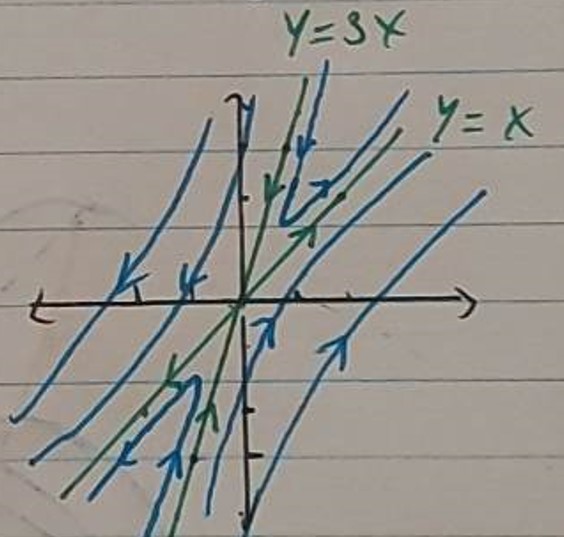 Y=3X
Y= X